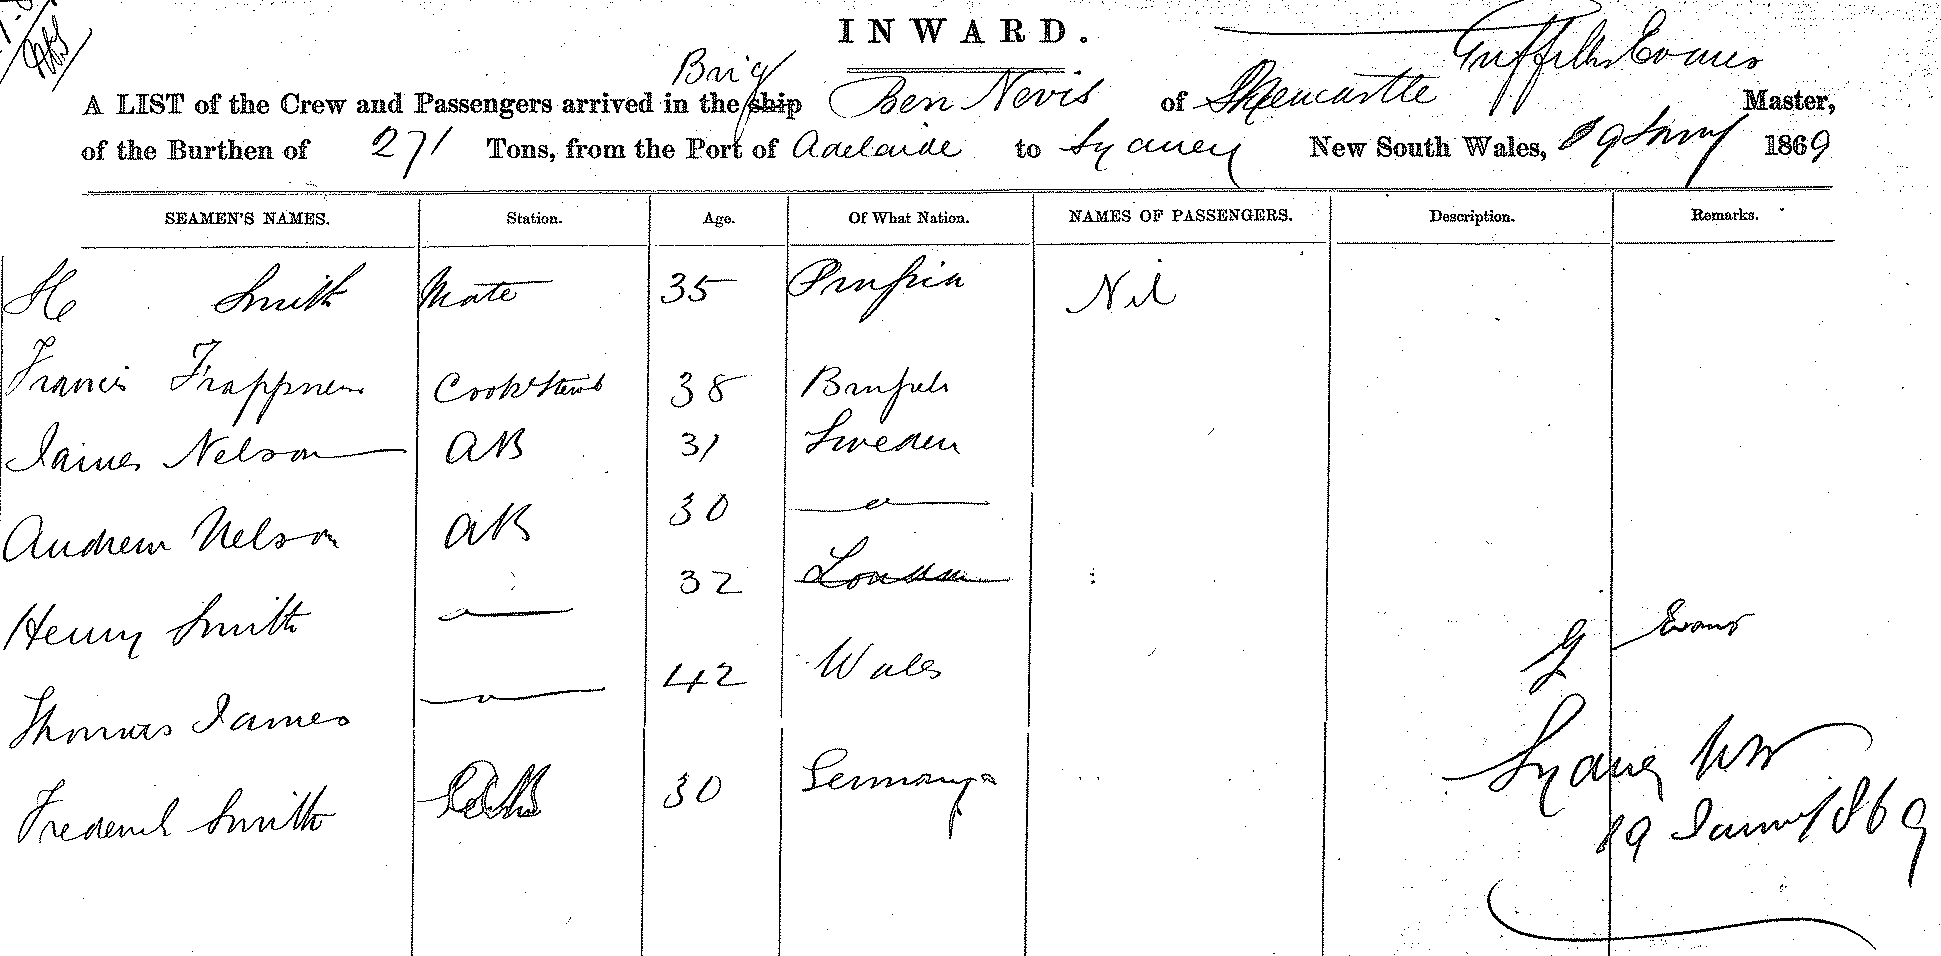 INWARD.
Griffith Evans
Brig
A LIST of the Crew and Passengers arrived in the ship Ben Nevis of Master,
of the Burthen of 271 Tons, from the Port of Adelaide to Sydney New South Wales, 19 Jany 1869
SEAMEN'S NAMES. Station. Age. Of What Nation. NAMES OF PASSENGERS. Description. Remarks.
H Smith Mate 35 Prussia Nil
Francis Cook & Stewd 38 Brussels
James Nelson AB 31 Sweden
Andrew Nelson AB 30
Henry Smith 32 London
Thomas James 42 Wales
Frederick Smith 30 Germany
G Evans
Sydney NSW
19 Jany 1869